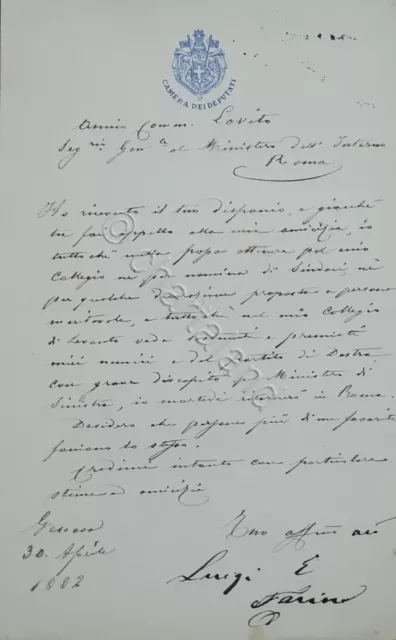 CAMERA DEI DEPUTATI
Comm. Lovito
Seg.rio Gen.le al Ministero dell'Interno
Roma
Ho ricevuto il tuo dispaccio, e giacchè
tu fai appello alla mia amicizia, io
tuttochè nulla possa ottenere pel mio
Collegio nè per nomina di Sindaci, nè
per qualche decorazione proposta a persone
meritevole, e tuttochè nel mio Collegio
di Levanto veda e premiati
miei nemici e del Partito di Destra
con grave discapito pel Ministero di
Sinistra, io martedì ritornerò in Roma.
Desidero che persone più di me favorite
faciano lo stesso.
Credimi intanto con particolare
stima ed amicizia
Genova
30. Aprile
1882
Tuo aff.mo
Luigi E
Farina